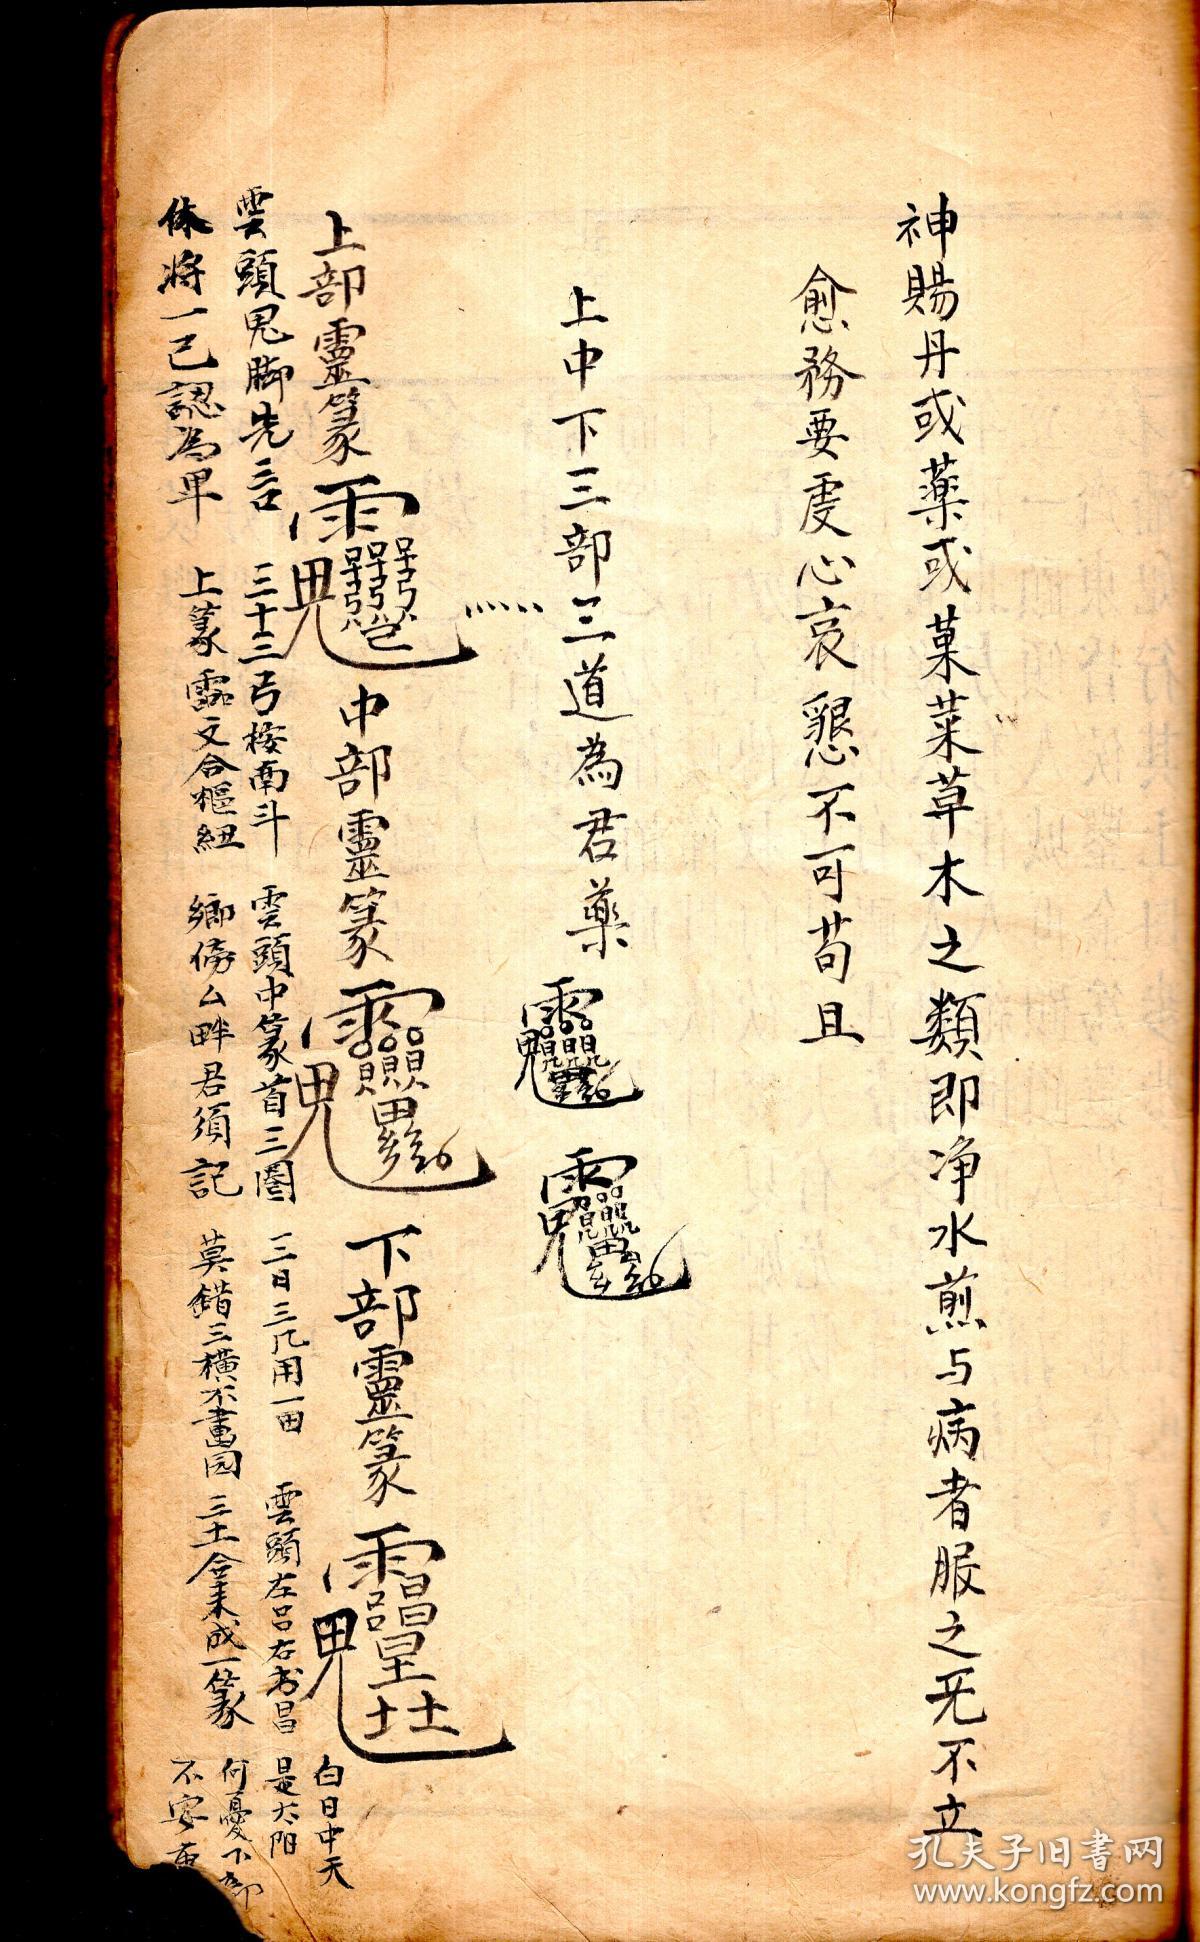 神賜丹或藥或菓菜草木之類即净水煎与病者服之无不立
愈務要虔心哀懇不可苟且
上中下三部三道為君藥
上部靈篆
中部靈篆
下部靈篆
雲頭鬼脚先言
三十三弓按南斗
雲頭中篆首三圈
三日三几用一田
雲頭左吕右为昌
白日中天
是太阳
休將一己認為早
上篆靈文合樞紐
鄉傍厶畔君須記
莫錯三横不畫园
三土合来成一篆
何憂下部
不安
孔夫子旧书网
www.kongfz.com